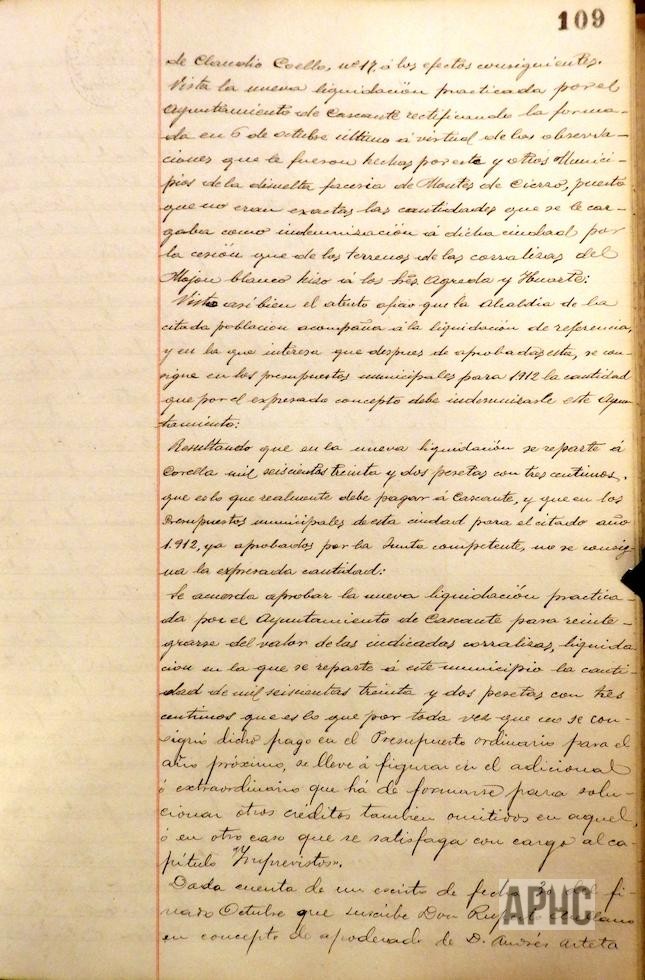 109
de Claudio Coello, nº 17, á los efectos consiguientes.
Vista la nueva liquidación practicada por el
Ayuntamiento de Cascante rectificando la forma-
da en 6 de octubre último á virtud de las observa-
ciones que le fueron hechas por este y otros Munici-
pios de la disuelta facería de Montes de Cierzo, puesto
que no eran exactas las cantidades que se le car-
gaba como indemnización á dicha ciudad por
la cesión que de los terrenos de las corralizas del
Mojon blanco hizo á los Sres. Agreda y Huarte:
Visto asi bien el atento oficio que la Alcaldía de la
citada población acompaña á la liquidación de referencia,
y en la que interesa que despues de aprobada esta, se con-
signe en los presupuestos municipales para 1912 la cantidad
que por el expresado concepto debe indemnizarle este Ayun-
tamiento:
Resultando que en la nueva liquidación se reparte á
Corella mil seiscientas treinta y dos pesetas con tres centimos,
que es lo que realmente debe pagar á Cascante, y que en los
Presupuestos municipales de esta ciudad para el citado año
1.912, ya aprobados por la Junta competente, no se consig-
na la expresada cantidad:
Se acuerda aprobar la nueva liquidación practica-
da por el Ayuntamiento de Cascante para reinte-
grarse del valor de las indicadas corralizas, liquida
cion en la que se reparte á este municipio la canti-
dad de mil seiscientas treinta y dos pesetas con tres
centimos que es lo que por toda vez que no se con-
signó dicho pago en el Presupuesto ordinario para el
año próximo, se lleve á figurar en el adicional
ó extraordinario que há de formarse para solu-
cionar otros créditos tambien omitidos en aquel,
ó en otro caso que se satisfaga con cargo al ca-
pítulo "Imprevistos".
Dada cuenta de un escrito de fecha 30 del fi-
nado Octubre que suscribe Don Arellano
en concepto de apoderado de D. Andrés Arteta
APHC